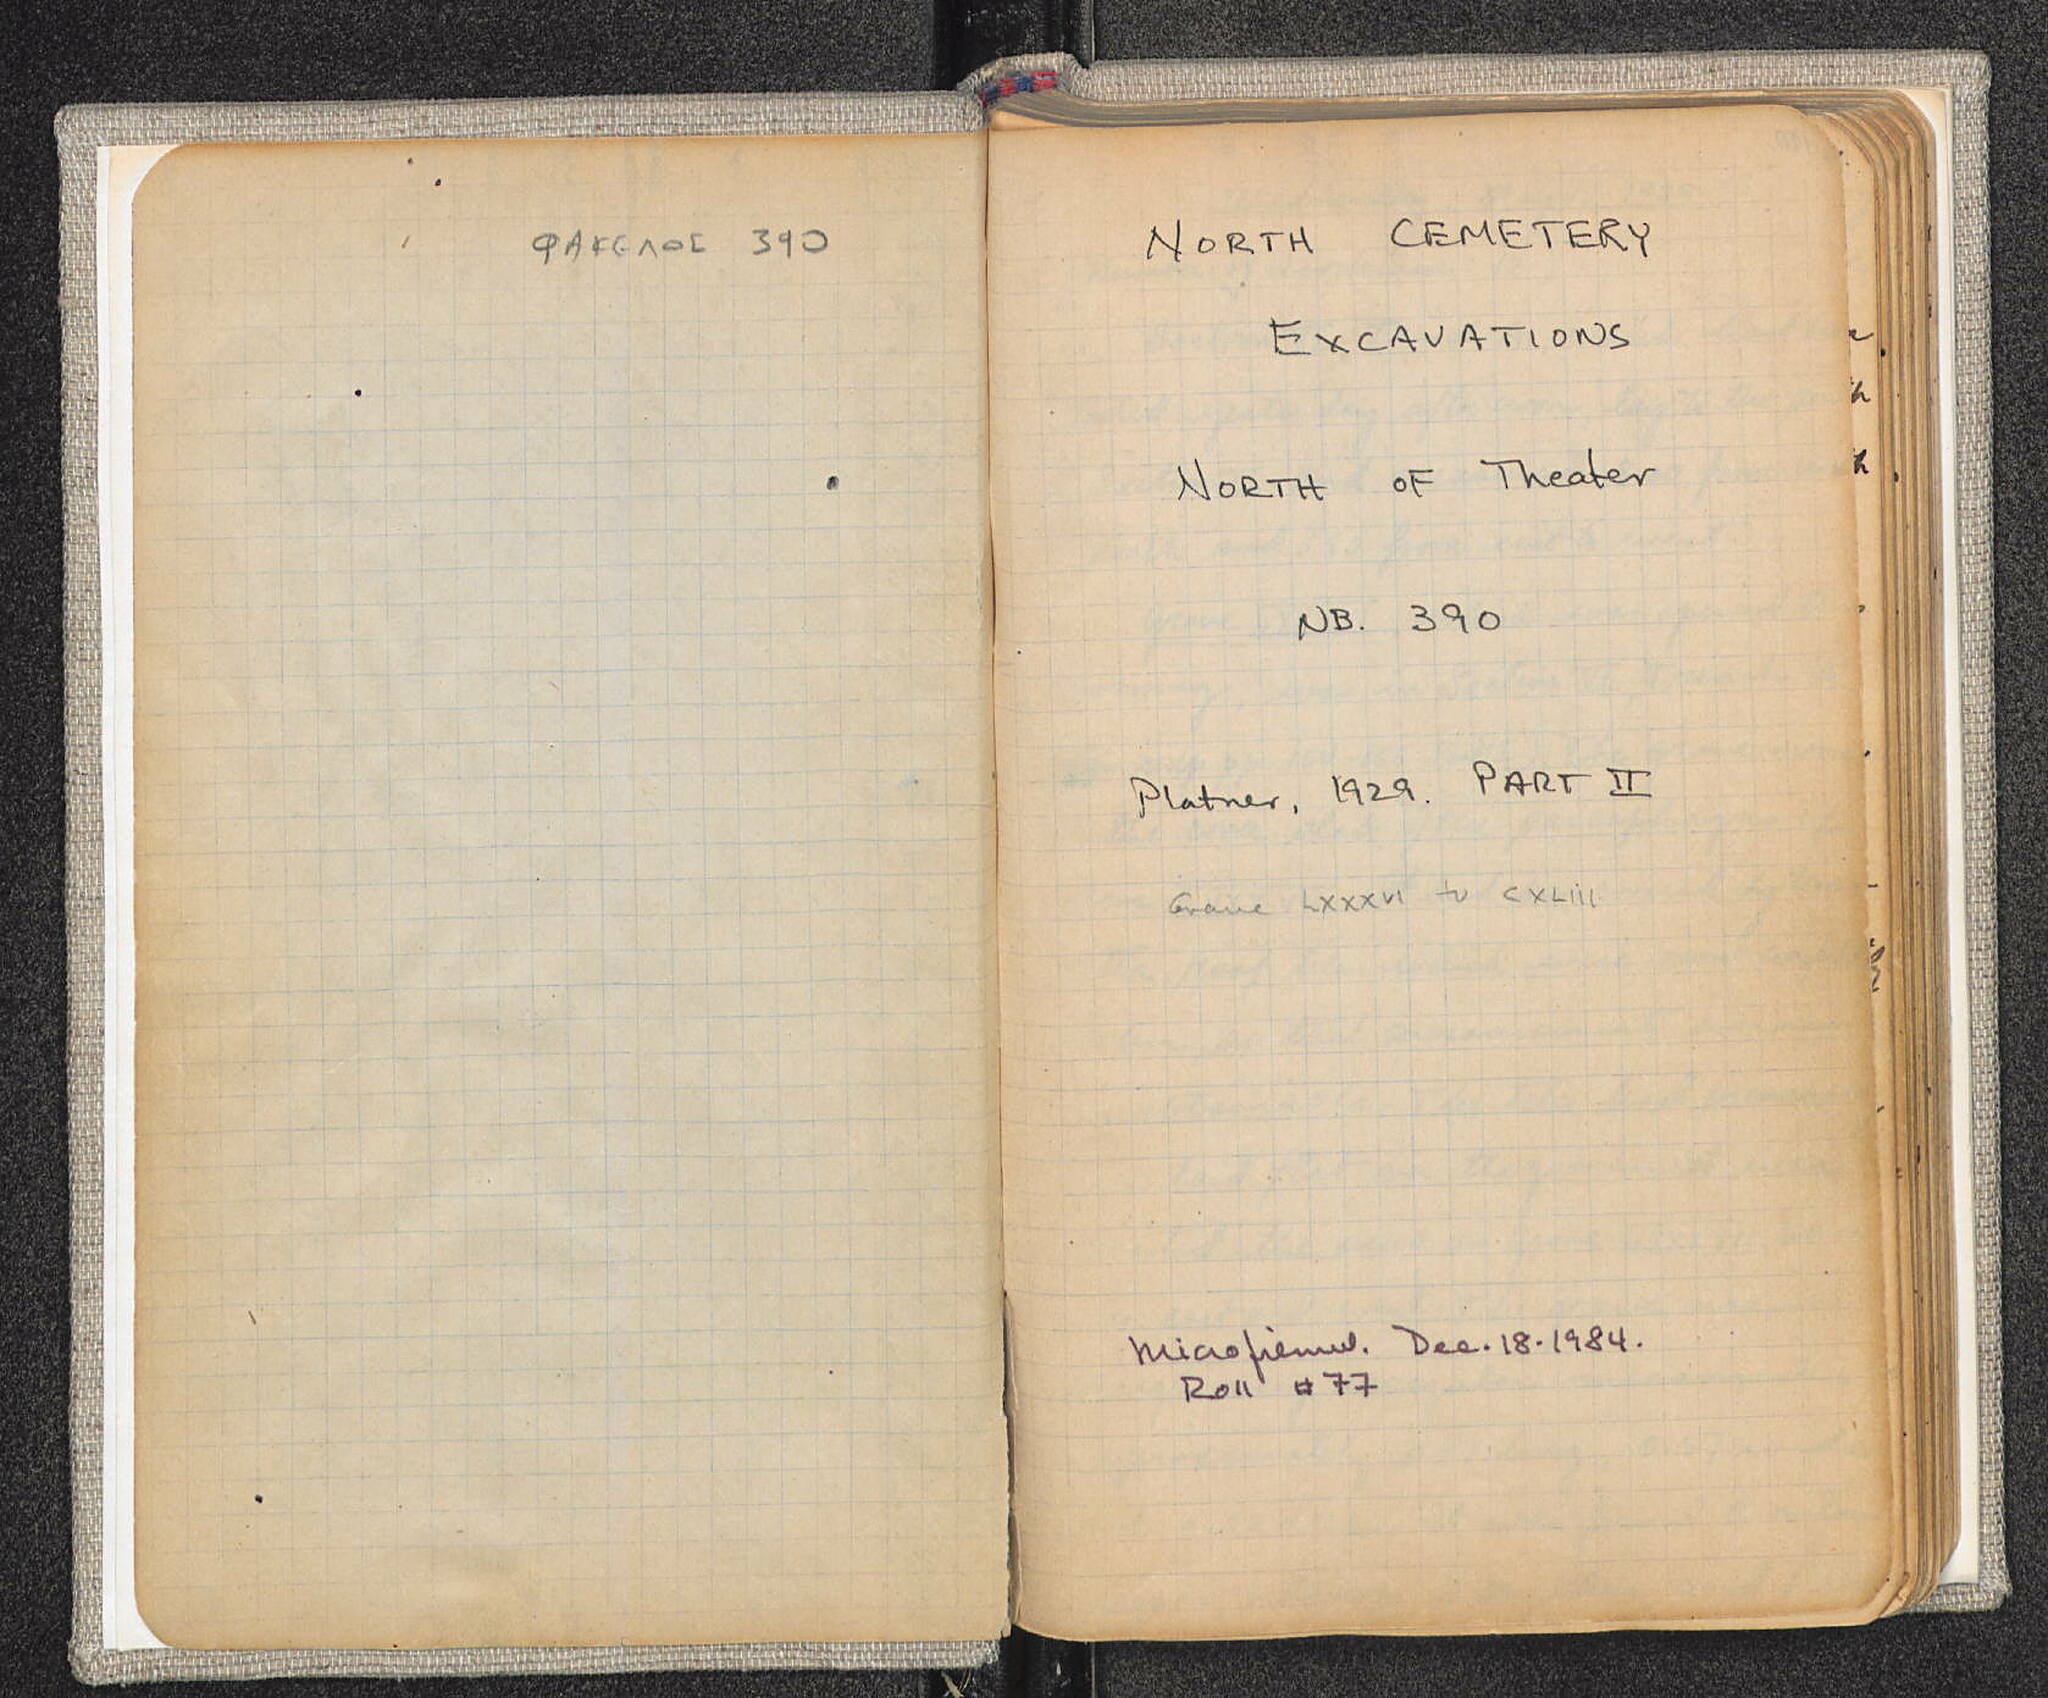 ΦΑΚΕΛΟΣ 390
NORTH CEMETERY
EXCAVATIONS
NORTH OF Theater
NB. 390
Platner, 1929. PART II
Grave LXXXVI to CXLIII
Microfilmed. Dec. 18. 1984.
Roll # 77